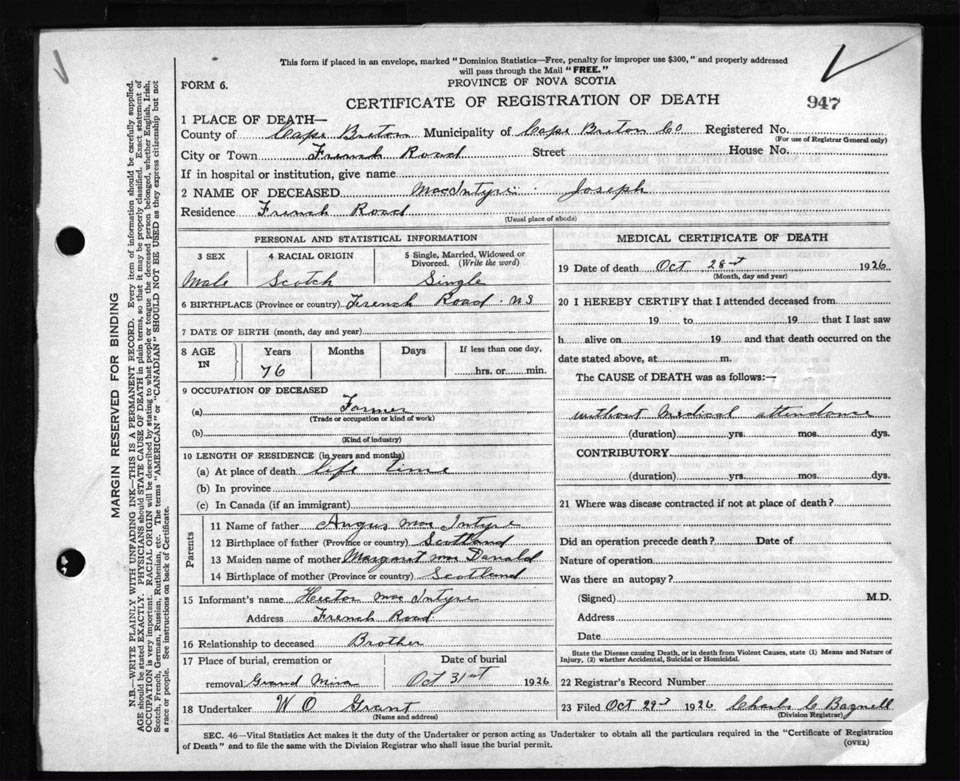 This form if placed in an envelope, marked "Dominion Statistics—Free, penalty for improper use $300," and properly addressed
will pass through the Mail "FREE."
FORM 6.
PROVINCE OF NOVA SCOTIA
CERTIFICATE OF REGISTRATION OF DEATH
947
1 PLACE OF DEATH—
County of Cape Breton Municipality of Cape Breton Co Registered No.
(For use of Registrar General only)
City or Town French Road Street House No.
If in hospital or institution, give name
2 NAME OF DECEASED MacIntyre Joseph
Residence French Road
(Usual place of abode)
PERSONAL AND STATISTICAL INFORMATION
3 SEX 4 RACIAL ORIGIN 5 Single, Married, Widowed or
Divorced. (Write the word)
Male Scotch Single
6 BIRTHPLACE (Province or country) French Road. N S
7 DATE OF BIRTH (month, day and year)
8 AGE IN Years Months Days If less than one day,
76 hrs. or min.
9 OCCUPATION OF DECEASED
(a) Farmer
(Trade or occupation or kind of work)
(b)
(Kind of industry)
10 LENGTH OF RESIDENCE (in years and months)
(a) At place of death life time
(b) In province
(c) In Canada (if an immigrant)
Parents
11 Name of father Angus Mac Intyre
12 Birthplace of father (Province or country) Scotland
13 Maiden name of mother Margaret Mac Donald
14 Birthplace of mother (Province or country) Scotland
15 Informant's name Hector Mac Intyre
Address French Road
16 Relationship to deceased Brother
17 Place of burial, cremation or Date of burial
removal Grand Mira Oct 31st 1926
18 Undertaker W O Grant
(Name and address)
MEDICAL CERTIFICATE OF DEATH
19 Date of death Oct 28th 1926
(Month, day and year)
20 I HEREBY CERTIFY that I attended deceased from
19 to 19 that I last saw
h alive on 19 and that death occurred on the
date stated above, at m.
The CAUSE of DEATH was as follows:—
without Medical attendance
(duration) yrs. mos. dys.
CONTRIBUTORY
(duration) yrs. mos. dys.
21 Where was disease contracted if not at place of death?
Did an operation precede death? Date of
Nature of operation
Was there an autopsy?
(Signed) M.D.
Address
Date
State the Disease causing Death, or in death from Violent Causes, state (1) Means and Nature of
Injury, (2) whether Accidental, Suicidal or Homicidal.
22 Registrar's Record Number
23 Filed Oct 29th 1926 Charles C Bagnell
(Division Registrar)
SEC. 46—Vital Statistics Act makes it the duty of the Undertaker or person acting as Undertaker to obtain all the particulars required in the "Certificate of Registration
of Death" and to file the same with the Division Registrar who shall issue the burial permit. (OVER)
MARGIN RESERVED FOR BINDING
N.B.—WRITE PLAINLY WITH UNFADING INK—THIS IS A PERMANENT RECORD. Every item of information should be carefully supplied.
AGE should be stated EXACTLY. PHYSICIANS should STATE CAUSE OF DEATH in plain terms, so that it may be properly classified. Exact statement of
OCCUPATION is very important. RACIAL ORIGIN will be described by stating to what people or tongue the deceased person belonged, whether English, Irish,
Scotch, French, German, Russian, Ruthenian, etc. The terms "AMERICAN" or "CANADIAN" SHOULD NOT BE USED as they express citizenship but not
a race or people. See instructions on back of Certificate.